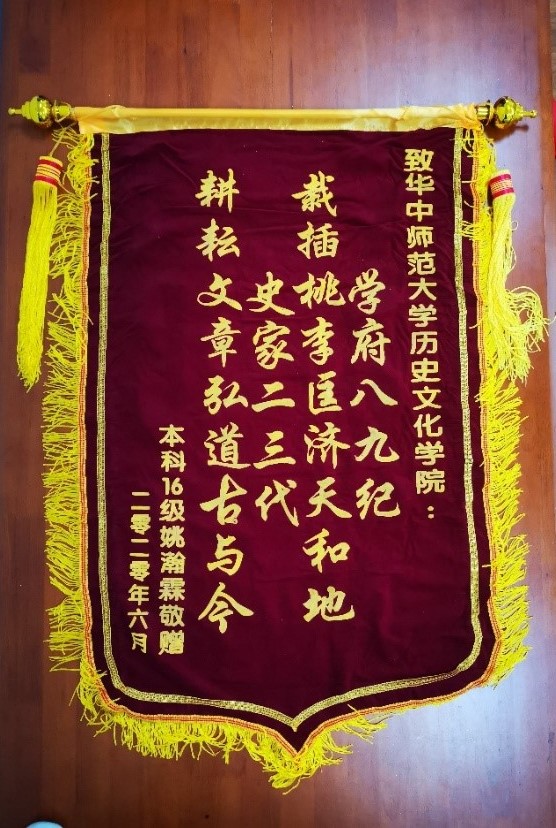 致华中师范大学历史文化学院：
学府八九纪
栽插桃李匡济天和地
史家二三代
耕耘文章弘道古与今
本科16级姚瀚霖敬赠
二零二零年六月